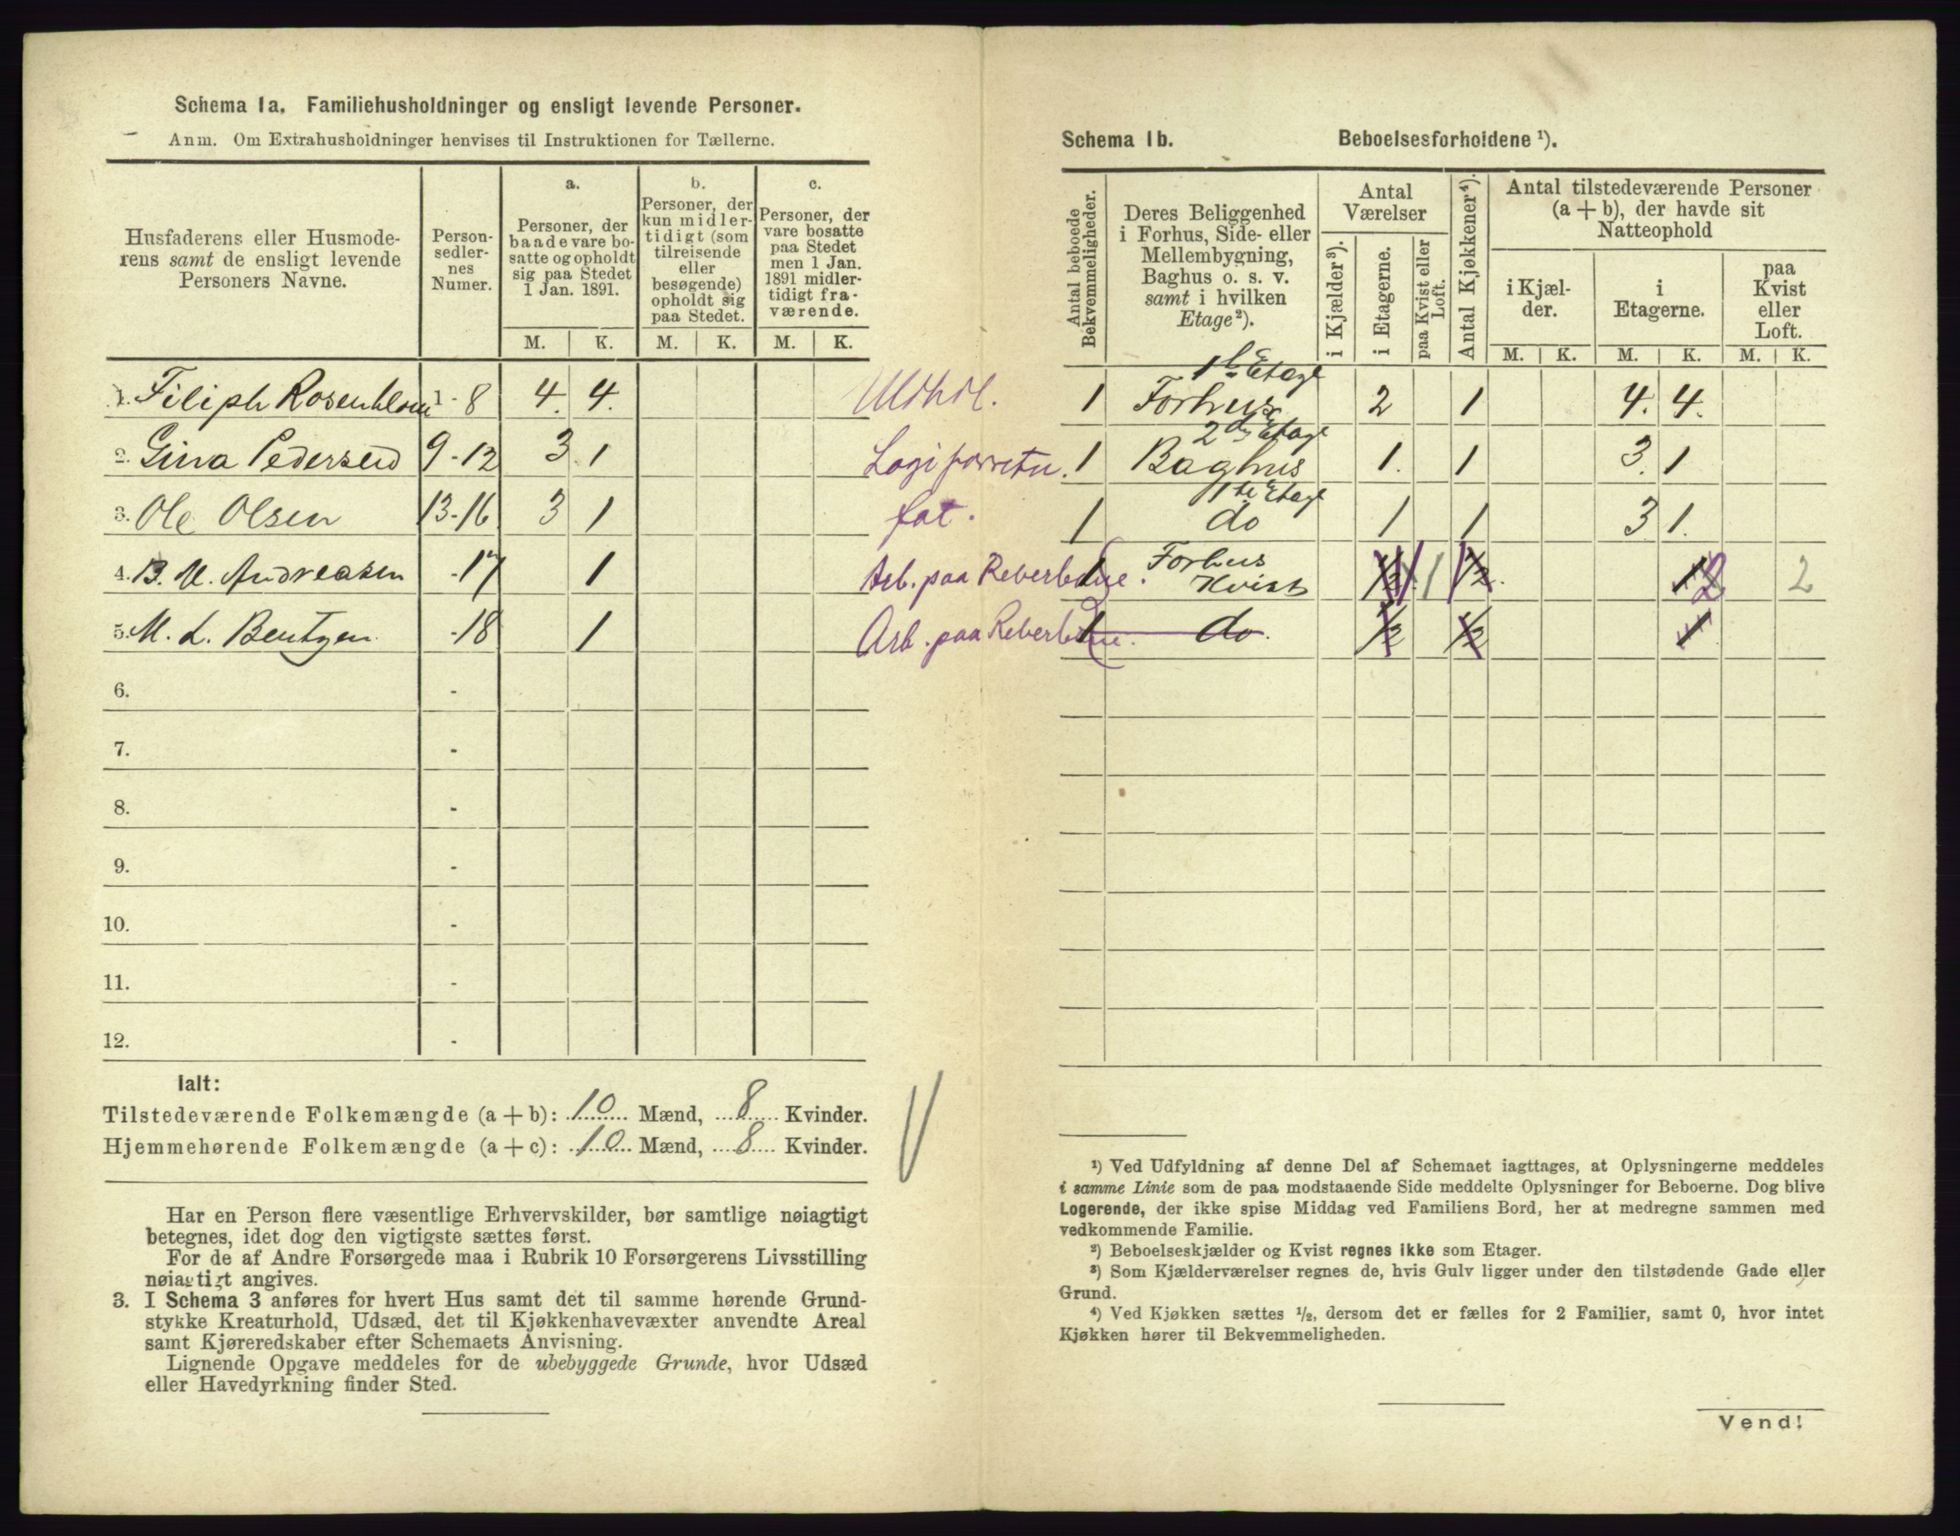 Schema 1a. Familiehusholdninger og ensligt levende Personer.
Anm. Om Extrahusholdninger henvises til Instruktionen for Tællerne.
Husfaderens eller Husmoderens samt de ensligt levende Personers Navne.
Personsedlernes Numer.
a.
Personer, der baade vare bosatte og opholdt sig paa Stedet 1 Jan. 1891.
b.
Personer, der kun midlertidigt (som tilreisende eller besøgende) opholdt sig paa Stedet.
c.
Personer, der vare bosatte paa Stedet men 1 Jan. 1891 midlertidigt fraværende.
M. K. M. K. M. K.
1. Filiph Rosenblom 1-8 4. 4.
2. Gina Pedersen 9-12 3 1
3. Ole Olsen 13-16 3 1
4. B. M. Andreasen -17 1 Arb. paa Reberbane.
5. M. L. Bentzen -18 1 Arb. paa Reberbane.
6. -
7. -
8. -
9. -
10. -
11. -
12. -
Ialt:
Tilstedeværende Folkemængde (a + b): 10 Mænd, 8 Kvinder.
Hjemmehørende Folkemængde (a + c): 10 Mænd, 8 Kvinder.
Har en Person flere væsentlige Erhvervskilder, bør samtlige nøiagtigt
betegnes, idet dog den vigtigste sættes først.
For de af Andre Forsørgede maa i Rubrik 10 Forsørgerens Livsstilling
nøiagtigt angives.
3. I Schema 3 anføres for hvert Hus samt det til samme hørende Grund-
stykke Kreaturhold, Udsæd, det til Kjøkkenhavevæxter anvendte Areal
samt Kjøreredskaber efter Schemaets Anvisning.
Lignende Opgave meddeles for de ubebyggede Grunde, hvor Udsæd
eller Havedyrkning finder Sted.
Schema 1b. Beboelsesforholdene ¹).
Antal beboede Bekvemmeligheder.
Deres Beliggenhed i Forhus, Side- eller Mellembygning, Baghus o. s. v. samt i hvilken Etage²).
Antal Værelser
i Kjælder³).
i Etagerne.
paa Kvist eller Loft.
Antal Kjøkkener⁴).
Antal tilstedeværende Personer (a + b), der havde sit Natteophold
i Kjælder.
i Etagerne.
paa Kvist eller Loft.
M. K. M. K. M. K.
1 Forhus 1ste Etage 2 1 4. 4.
1 Baghus 2den Etage 1. 1 3. 1
1 do 1ste Etage 1 1 3 1.
1 Forhus Kvist 1/2 1 1/2. 1 2 2
1 do. 1/2 1/2 1
¹) Ved Udfyldning af denne Del af Schemaet iagttages, at Oplysningerne meddeles
i samme Linie som de paa modstaaende Side meddelte Oplysninger for Beboerne. Dog blive
Logerende, der ikke spise Middag ved Familiens Bord, her at medregne sammen med
vedkommende Familie.
²) Beboelseskjælder og Kvist regnes ikke som Etager.
³) Som Kjælderværelser regnes de, hvis Gulv ligger under den tilstødende Gade eller
Grund.
⁴) Ved Kjøkken sættes ½, dersom det er fælles for 2 Familier, samt 0, hvor intet
Kjøkken hører til Bekvemmeligheden.
Vend!